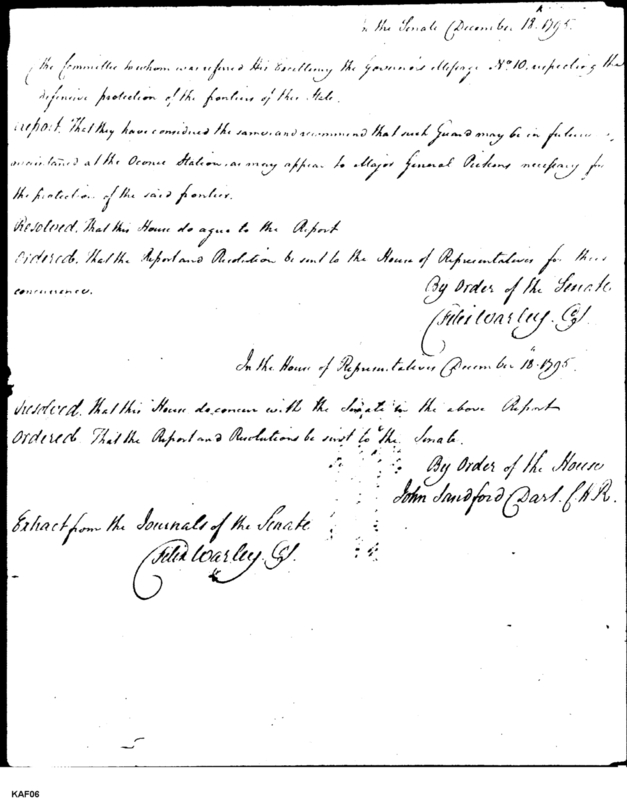 In the Senate December 18th 1795.
The Committee to whom was refered His Excellency the Governor's Message No 10. respecting the
defensive protection of the frontiers of this State.
report. That they have considered the same and recommend that such Guard may be in future
maintained at the Oconee Station as may appear to Major General Pickens necessary for
the protection of the said frontier.
Resolved. That this House do agree to the Report
Ordered. That the Report and Resolution be sent to the House of Representatives for their
concurrence.
By Order of the Senate
Felix Warley. Clk.
In the House of Representatives December 18th 1795.
resolved. That this House do concur with the Senate in the above Report
Ordered That the Report and Resolutions be sent to the Senate.
By Order of the House
John Sandford Dart. C.H.R.
Extract from the Journals of the Senate
Felix Warley. Clk.
5
KAF06